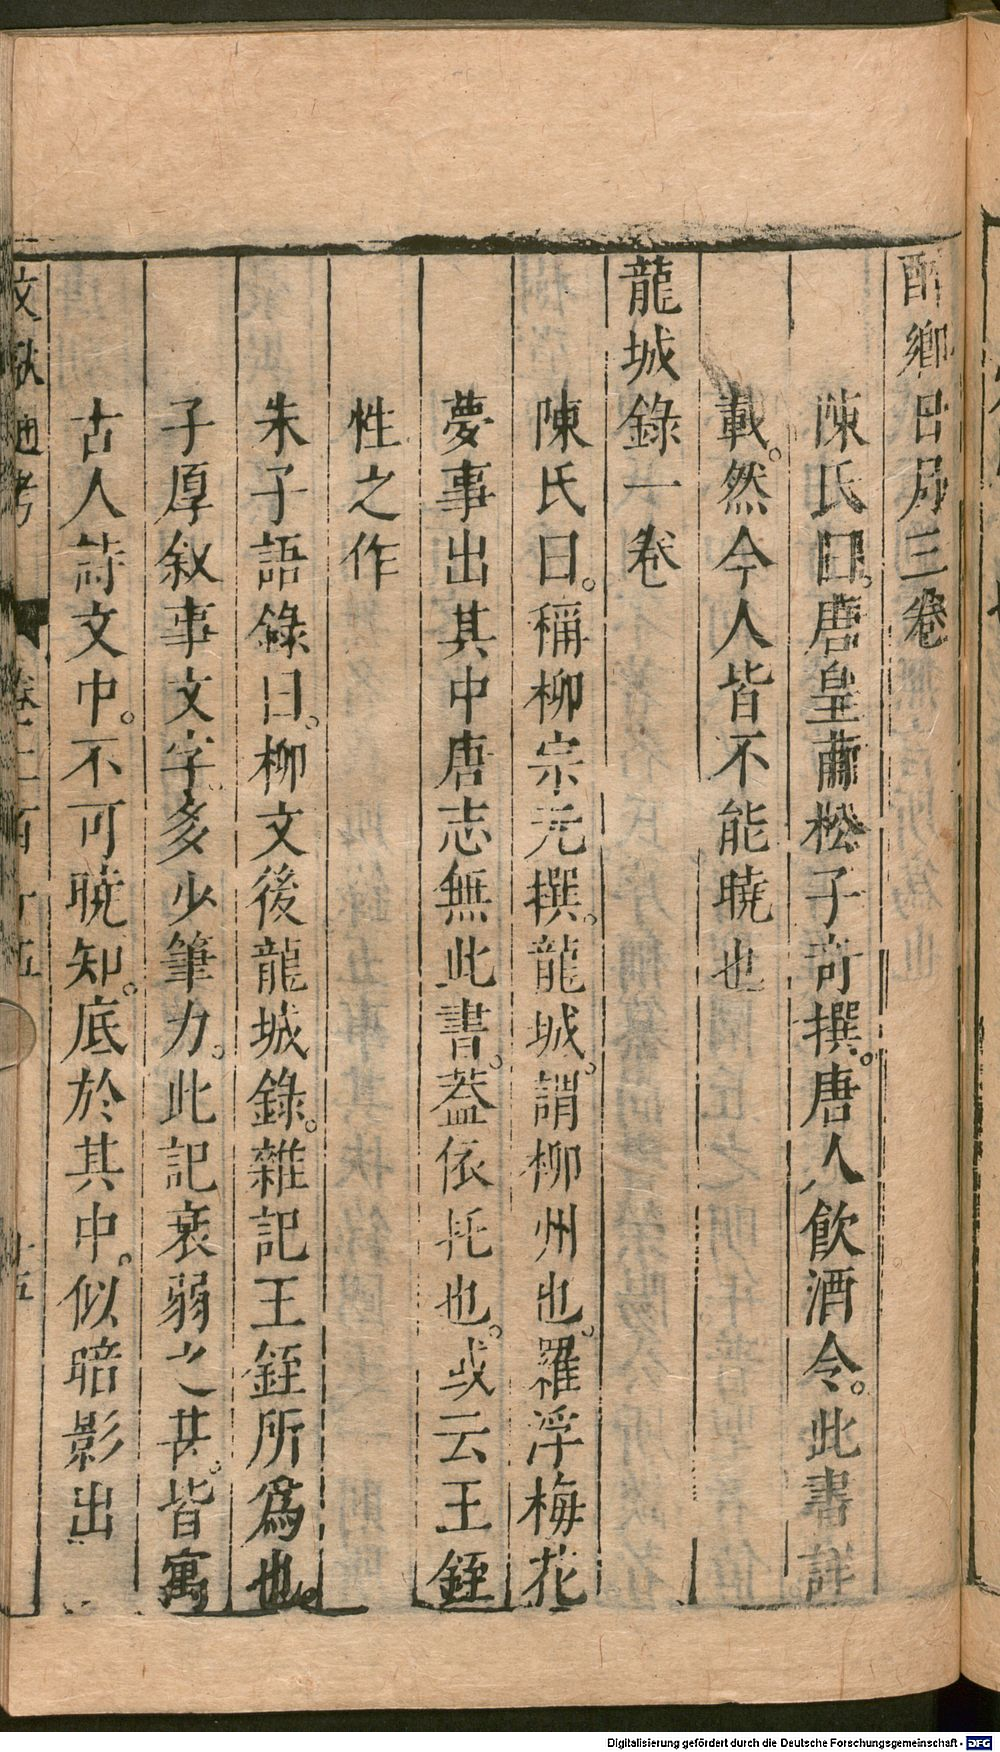 醉鄉日月三卷
陳氏曰。唐皇甫松子奇撰。唐人飲酒令。此書詳
載。然今人皆不能曉也
龍城錄一卷
陳氏曰。稱柳宗元撰。龍城。謂柳州也。羅浮梅花
夢事出其中唐志無此書。蓋依托也。或云王銍
性之作
朱子語錄曰。柳文後龍城錄。雜記王銍所為也。
子厚敘事文字。多少筆力。此記衰弱之甚。皆寓
古人詩文中。不可曉知。底於其中。似暗影出
文獻通考 卷二百十五 十五
Digitalisierung gefördert durch die Deutsche Forschungsgemeinschaft - DFG